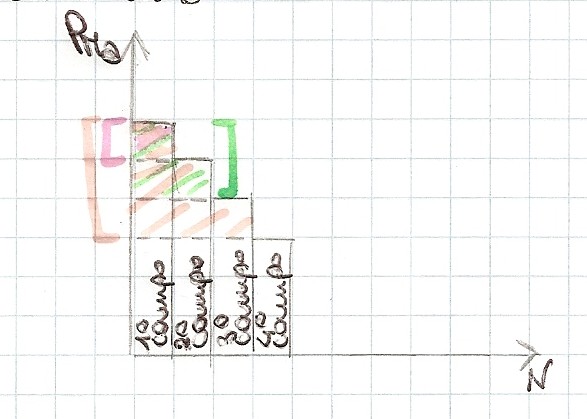 PMa
1° campo
2° campo
3° campo
4° campo
N